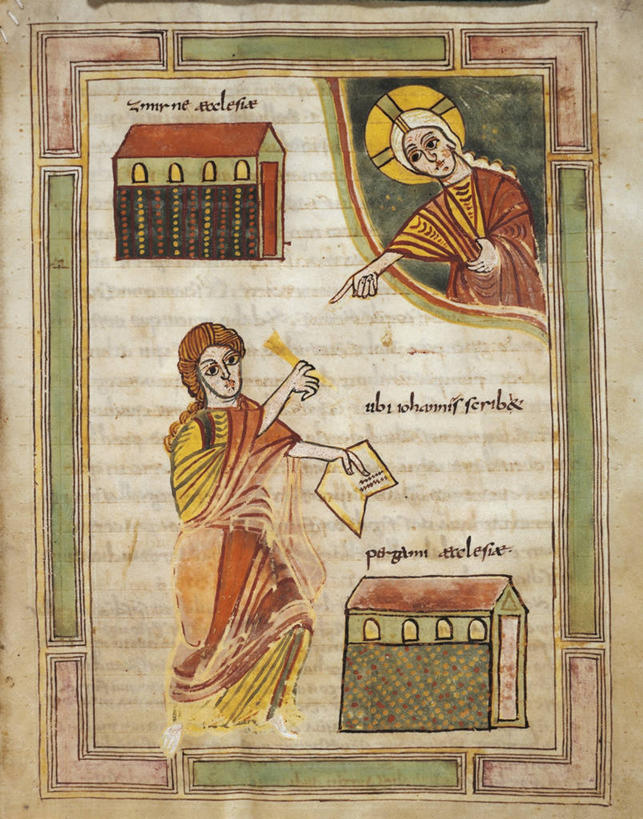 zmirne ecclesie
ubi iohannis scribet
pergami ecclesie.